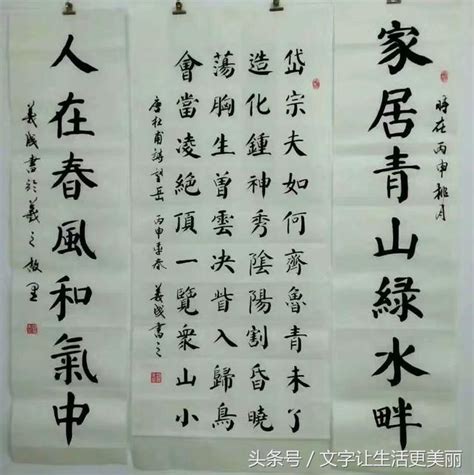 時在丙申桃月
家居青山綠水畔
岱宗夫如何齊魯青未了
造化鍾神秀陰陽割昏曉
蕩胸生曾雲决眥入歸鳥
會當凌絕頂一覽衆山小
唐杜甫詩望岳 丙申季春 義成書之
人在春風和氣中
義成書於羲之故里
头条号／文字让生活更美丽